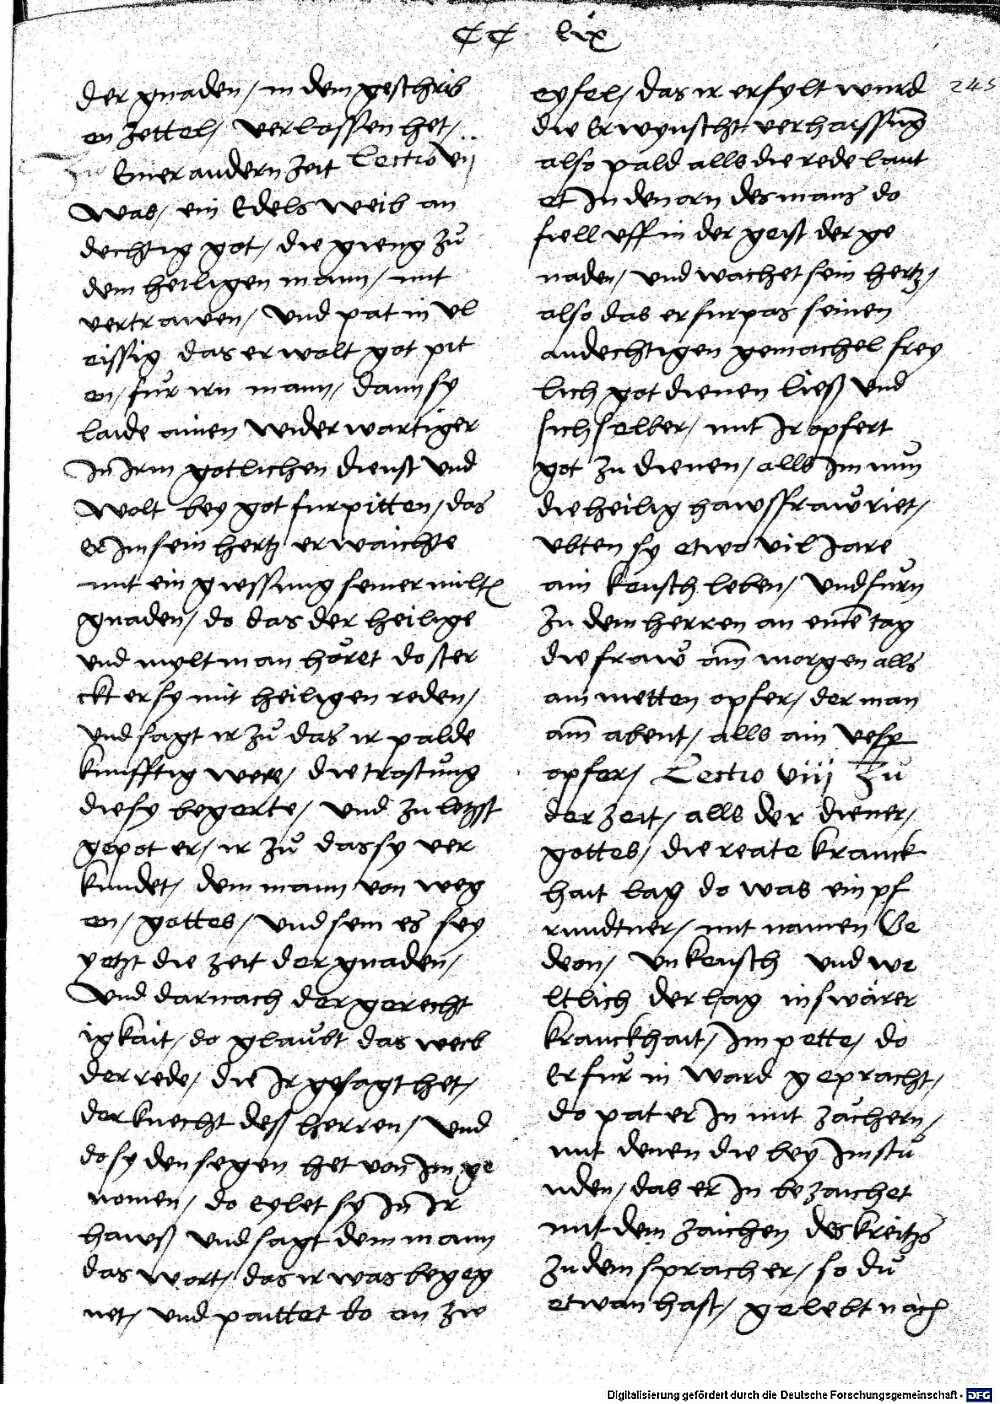 CC lix
245
der gnaden / in dem geschrib
en zettel / verlassen het /
Lectio vij
Einer andern zeit
was / ein Edels weib an
dechtig got / die gieng zů
dem heiligen mann / mit
vertrawen / und pat in vl
eissig das er wolt got pit
en / fur irn mann / dann sy
laide ainen widerwartiger
in irm gotlichen dienst und
wolt bey got furpitten / das
er im sein hertz erwaichte
mit ein giessung seiner milten
gnaden / do das der heilige
und mylt man höret do ster
ckt er sy mit heiligen reden /
und sagt ir zů das ir palde
kunfftig were / die trostung
die sy begerte / und zu letzst
gepot er / ir zů das sy ver
kundet / dem mann von weg
en / gottes / und sein es sey
yetzt die zeit der gnaden /
und darnach der gerecht
igkait / do glaubt das weib
der rede / die Ir gesagt het /
der knecht dess herren / und
do sy den segen het von Im ge
nomen / do eylet sy In Ir
hawß und sagt dem mann
das wort / das ir was begeg
net / und paittet do on zw
eyfel / das ir erfylt wurd
die Erwynscht verhaissung
also pald alls die rede laut
et In den orn des mans do
fiell uff in der geist der ge
naden / und wachet sein hertz /
also das er furpas seinen
andechtigen gemachel frey
lich got dienen ließ und
sich selber / mit Ir opfert
got zu dienen / alls Im nun
die heilig hawsfraw riet /
ubten sy etwo vil Jare
ain keusch leben / und furn
zu dem herren an einem tag
die fraw am morgen alls
ain metten opfer / der man
am abent / alls ain vesper
opfer / Lectio viij Zu
der zeit / alls der diener /
gottes / die reate kranck
hait lag do was ein pf
rundtner / mit namen Ge
deon / unkeusch und we
ltlich der lag in swärer
kranckhait / Im pette / do
Er fur in ward gepracht /
do pat er In mit zächern /
mit denen die bey Im stu
nden / das er In bezaichet
mit dem zaichen des kreitzs
zu dem sprach er / so du
etwan hast / gelebt nach
Digitalisierung gefördert durch die Deutsche Forschungsgemeinschaft - DFG